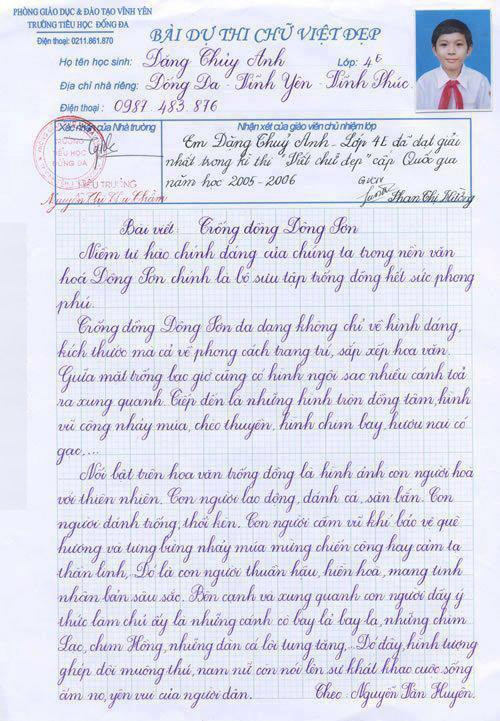 PHÒNG GIÁO DỤC & ĐÀO TẠO VĨNH YÊN
TRƯỜNG TIỂU HỌC ĐỐNG ĐA
Điện thoại: 0211.861.870
BÀI DỰ THI CHỮ VIỆT ĐẸP
Họ tên học sinh: Đặng Thùy Anh Lớp: 4E
Địa chỉ nhà riêng: Đống Đa - Vĩnh Yên - Vĩnh Phúc.
Điện thoại: 0987 483 876
Xác nhận của Nhà trường
HIỆU TRƯỞNG
Nhận xét của giáo viên chủ nhiệm lớp
Em Đặng Thuỳ Anh - Lớp 4E đã đạt giải
nhất trong kì thi "Viết chữ đẹp" cấp Quốc gia
năm học 2005 - 2006
GVCN
Phan Thị Hường
Bài viết: Trống đồng Đông Sơn
Niềm tự hào chính đáng của chúng ta trong nền văn
hoá Đông Sơn chính là bộ sưu tập trống đồng hết sức phong
phú.
Trống đồng Đông Sơn đa dạng không chỉ về hình dáng,
kích thước mà cả về phong cách trang trí, sắp xếp hoa văn.
Giữa mặt trống bao giờ cũng có hình ngôi sao nhiều cánh toả
ra xung quanh. Tiếp đến là những hình tròn đồng tâm, hình
vũ công nhảy múa, chèo thuyền, hình chim bay, hươu nai có
gạc,...
Nổi bật trên hoa văn trống đồng là hình ảnh con người hoà
với thiên nhiên. Con người lao động, đánh cá, săn bắn. Con
người đánh trống, thổi kèn. Con người cầm vũ khí bảo vệ quê
hương và tưng bừng nhảy múa mừng chiến công hay cảm tạ
thần linh. Đó là con người thuần hậu, hiền hoà, mang tính
nhân bản sâu sắc. Bên cạnh và xung quanh con người đầy ý
thức làm chủ ấy là những cánh cò bay lả bay la, những chim
Lạc, chim Hồng, những đàn cá lội tung tăng,... Đó đây, hình tượng
ghép đôi muông thú, nam nữ còn nói lên sự khát khao cuộc sống
ấm no, yên vui của người dân. Theo: Nguyễn Văn Huyên.